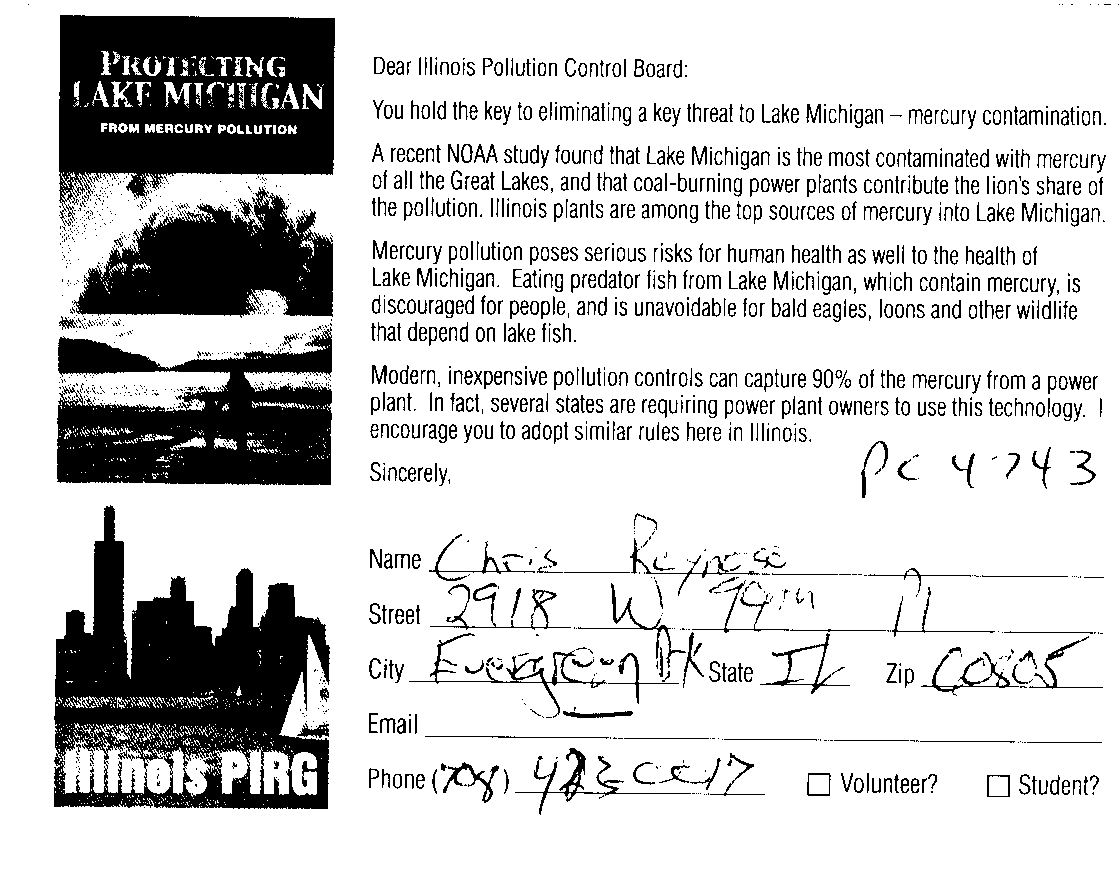 PROTECTING
LAKE MICHIGAN
FROM MERCURY POLLUTION
Illinois PIRG
Dear Illinois Pollution Control Board:
You hold the key to eliminating a key threat to Lake Michigan – mercury contamination.
A recent NOAA study found that Lake Michigan is the most contaminated with mercury
of all the Great Lakes, and that coal-burning power plants contribute the lion's share of
the pollution. Illinois plants are among the top sources of mercury into Lake Michigan.
Mercury pollution poses serious risks for human health as well to the health of
Lake Michigan. Eating predator fish from Lake Michigan, which contain mercury, is
discouraged for people, and is unavoidable for bald eagles, loons and other wildlife
that depend on lake fish.
Modern, inexpensive pollution controls can capture 90% of the mercury from a power
plant. In fact, several states are requiring power plant owners to use this technology. I
encourage you to adopt similar rules here in Illinois.
PC 4743
Sincerely,
Name Chris
Street 2918 W 99th Pl
City Evergreen Prk State IL Zip 60805
Email
Phone (708) Volunteer? Student?